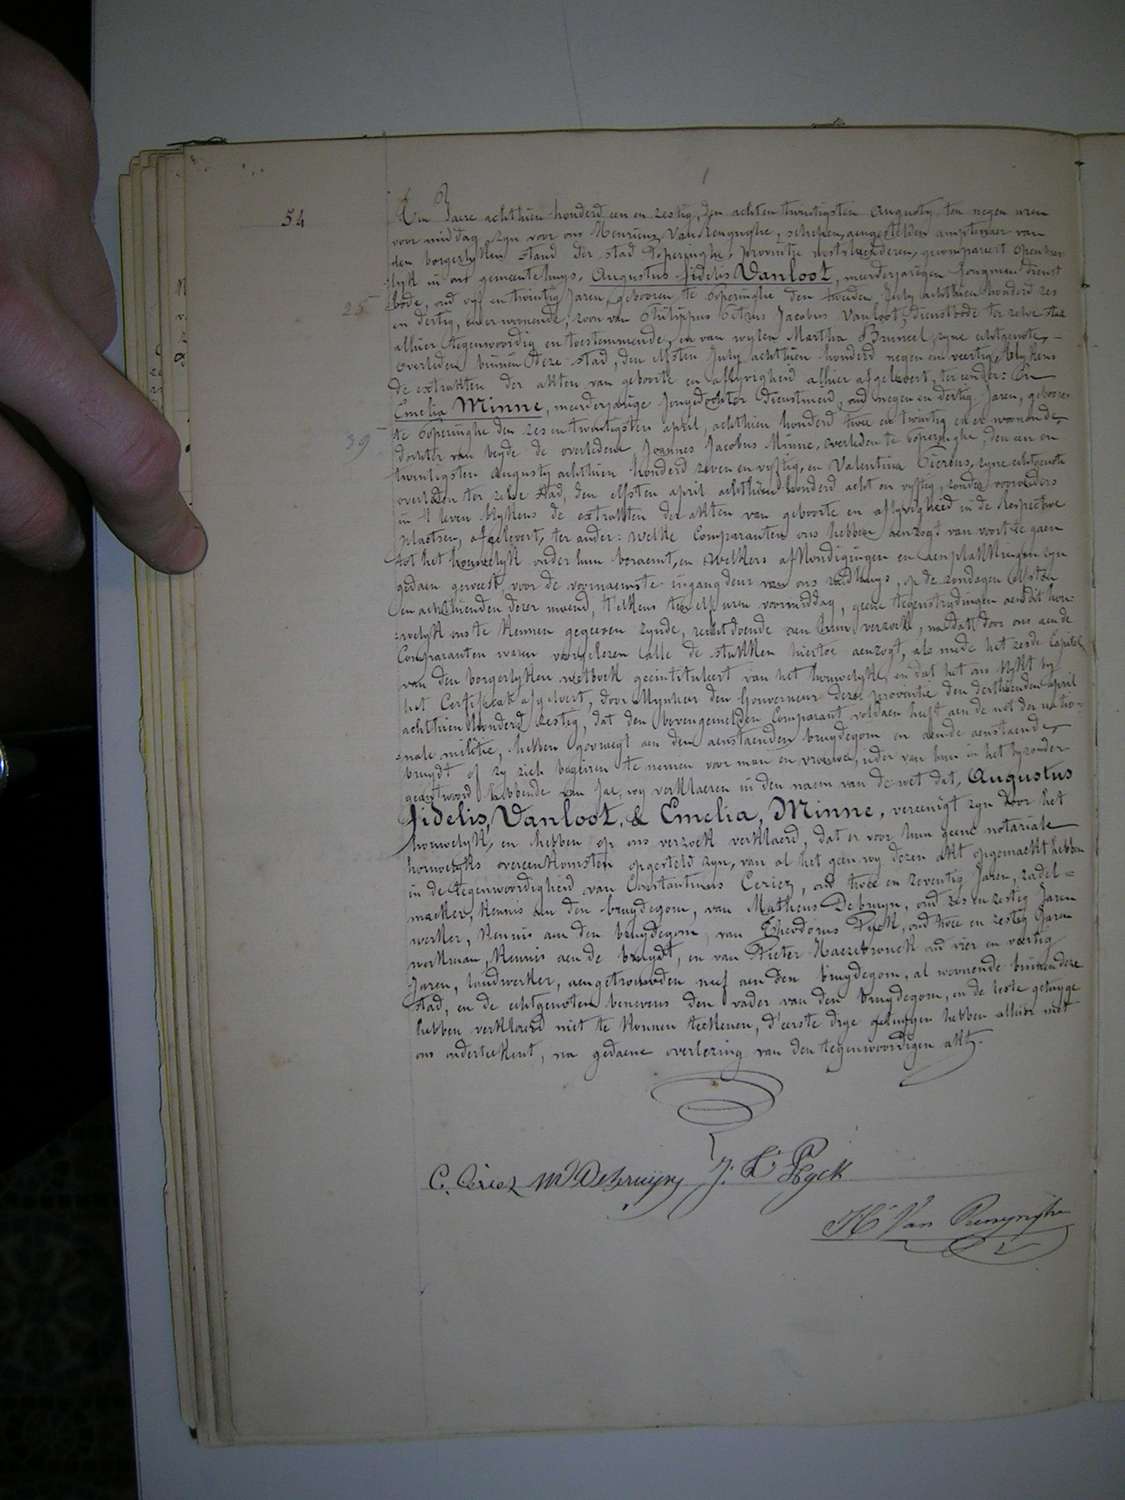 54
Den Jaere achthien honderd een en zestig, den achten twintigsten Augusty ten negen uren
voor middag, zyn voor ons Henricus VanRenynghe, schepen, aengestelden amptenaer van
den borgerlyken stand der stad Poperinghe, provintje westvlaenderen, gecompareert openbaer
lyk in ons gemeentehuys, Augustus Fidelis Vanloot, meerderjarigen Jongman dienst
25
bode, oud vyf en twintig Jaren, gebooren te Poperinghe den tweeden July achthien honderd zes
en dertig, en er woonende, zoon van Philippus Petrus Jacobus Vanloot, dienstbode ter zelve stad
alhier tegenwoordig en toestemmende, en van wylen Martha Bruneel, zyne echtgenote,
overleden binnen deze stad, den elfsten July achthien honderd negen en veertig, blykens
de extrakten der akten van geboorte en aflyvigheid alhier afgelevert, ter eender: En
Emelia Minne, meerderjarige Jongedochter dienstmeid, oud negen en dertig Jaren, geboore
39
te Poperinghe den zes en twintigsten april, achthien honderd twee en twintig en er woonende
dochter van beyde de overledene Joannes Jacobus Minne, overleden te Poperinghe, den een en
twintigsten Augusty achthien honderd zeven en vyftig, en Valentina zyne echtgenote
overleden ter zelve stad, den elfsten april achthien honderd acht en vyftig, zonder voorouders
in 't leven blykens de extrakten der akten van geboorte en aflyvigheid in de respective
plaetsen afgelevert, ter ander: welke Comparanten ons hebben aenzogt van voort te gaen
tot het houwelyk onder hun beraemt, en welkers afkondigingen en aenplakkingen zyn
gedaen geweest voor de voornaemste ingang deur van ons raedhuys, op de zondagen elfsten
en achthienden dezer maend, telkens ten elf uren voormiddag, geene tegenstrydingen aen dit hou-
welyk ons te kennen gegeeven zynde, recht doende aen hun verzoek, na dat door ons aen de
Comparanten waren voorgelezen alle de stukken hiertoe aenzogt, als mede het zesde Capitel
van den borgerlyken wetboek geëintituleert van het houwelyk, en dat het ons blykt by
het Certifikaet afgelevert, door Mynheer den Gouverneur dezer provintie den derthienden april
achthien honderd zestig, dat den bovengemelden Comparant voldaen heeft aen de wet der natio-
nale militie, hebben gevraegt aen den aenstaenden bruydegom en aende aenstaende
bruydt of zy zich begeiren te nemen voor man en vrouwe, ieder van hun in het byzonder
geäntwoord hebbende van Jae, wy verklaeren in den naem van de wet dat, Augustus
Fidelis, Vanloot, & Emelia, Minne, vereenigt zyn door het
houwelyk, en hebben op ons verzoek verklaerd, dat er voor hun geene notariale
houwelyks overeenkomsten opgesteld zyn, van al het geen wy dezen akt opgemaekt hebben
in de tegenwoordigheid van Constantinus Ceriez, oud twee en zeventig Jaren, zadel=
maeker, kennis aen den bruydegom, van Matheus Debruyn, oud zes en zestig Jaren
werker, kennis aen den bruydegom, van oud twee en zestig Jaren
werkman, kennis aen de bruydt, en van Pieter Haezebrouck oud vier en veertig
Jaren, landwerker, aengetrouwden neef aen den bruydegom, al woonende binnen deze
stad, en de echtgenoten benevens den vader van den bruydegom, en de leste getuyge
hebben verklaerd niet te konnen teekenen, d'eerste drye getuygen hebben alhier met
ons onderteekent, na gedaene overlezing van den tegenwoordigen akt.
C. Ceriez M Debruyn J. L. Pyck
H. Van Renynghe